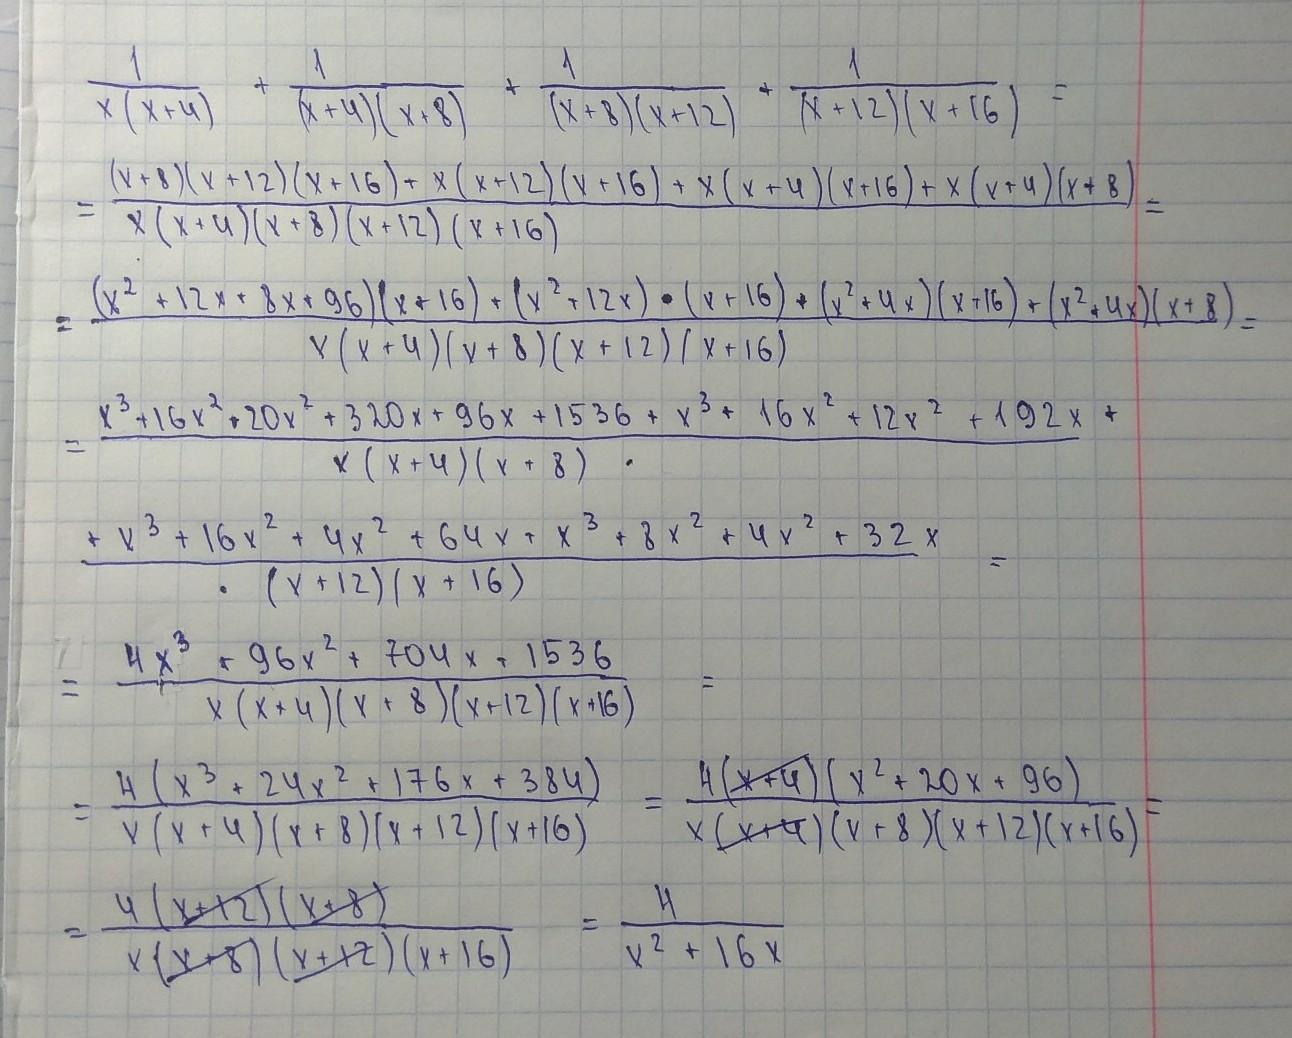 1/(x(x+4)) + 1/((x+4)(x+8)) + 1/((x+8)(x+12)) + 1/((x+12)(x+16)) =
= ((x+8)(x+12)(x+16) + x(x+12)(x+16) + x(x+4)(x+16) + x(x+4)(x+8))/(x(x+4)(x+8)(x+12)(x+16)) =
= ((x²+12x+8x+96)(x+16) + (x²+12x)·(x+16) + (x²+4x)(x+16) + (x²+4x)(x+8))/(x(x+4)(x+8)(x+12)(x+16)) =
= (x³+16x²+20x²+320x+96x+1536+x³+16x²+12x²+192x+)/(x(x+4)(x+8)·
(+x³+16x²+4x²+64x+x³+8x²+4x²+32x)/(·(x+12)(x+16)) =
= (4x³+96x²+704x+1536)/(x(x+4)(x+8)(x+12)(x+16)) =
= (4(x³+24x²+176x+384))/(x(x+4)(x+8)(x+12)(x+16)) = (4(x+4)(x²+20x+96))/(x(x+4)(x+8)(x+12)(x+16)) =
= (4(x+12)(x+8))/(x(x+8)(x+12)(x+16)) = 4/(x²+16x)